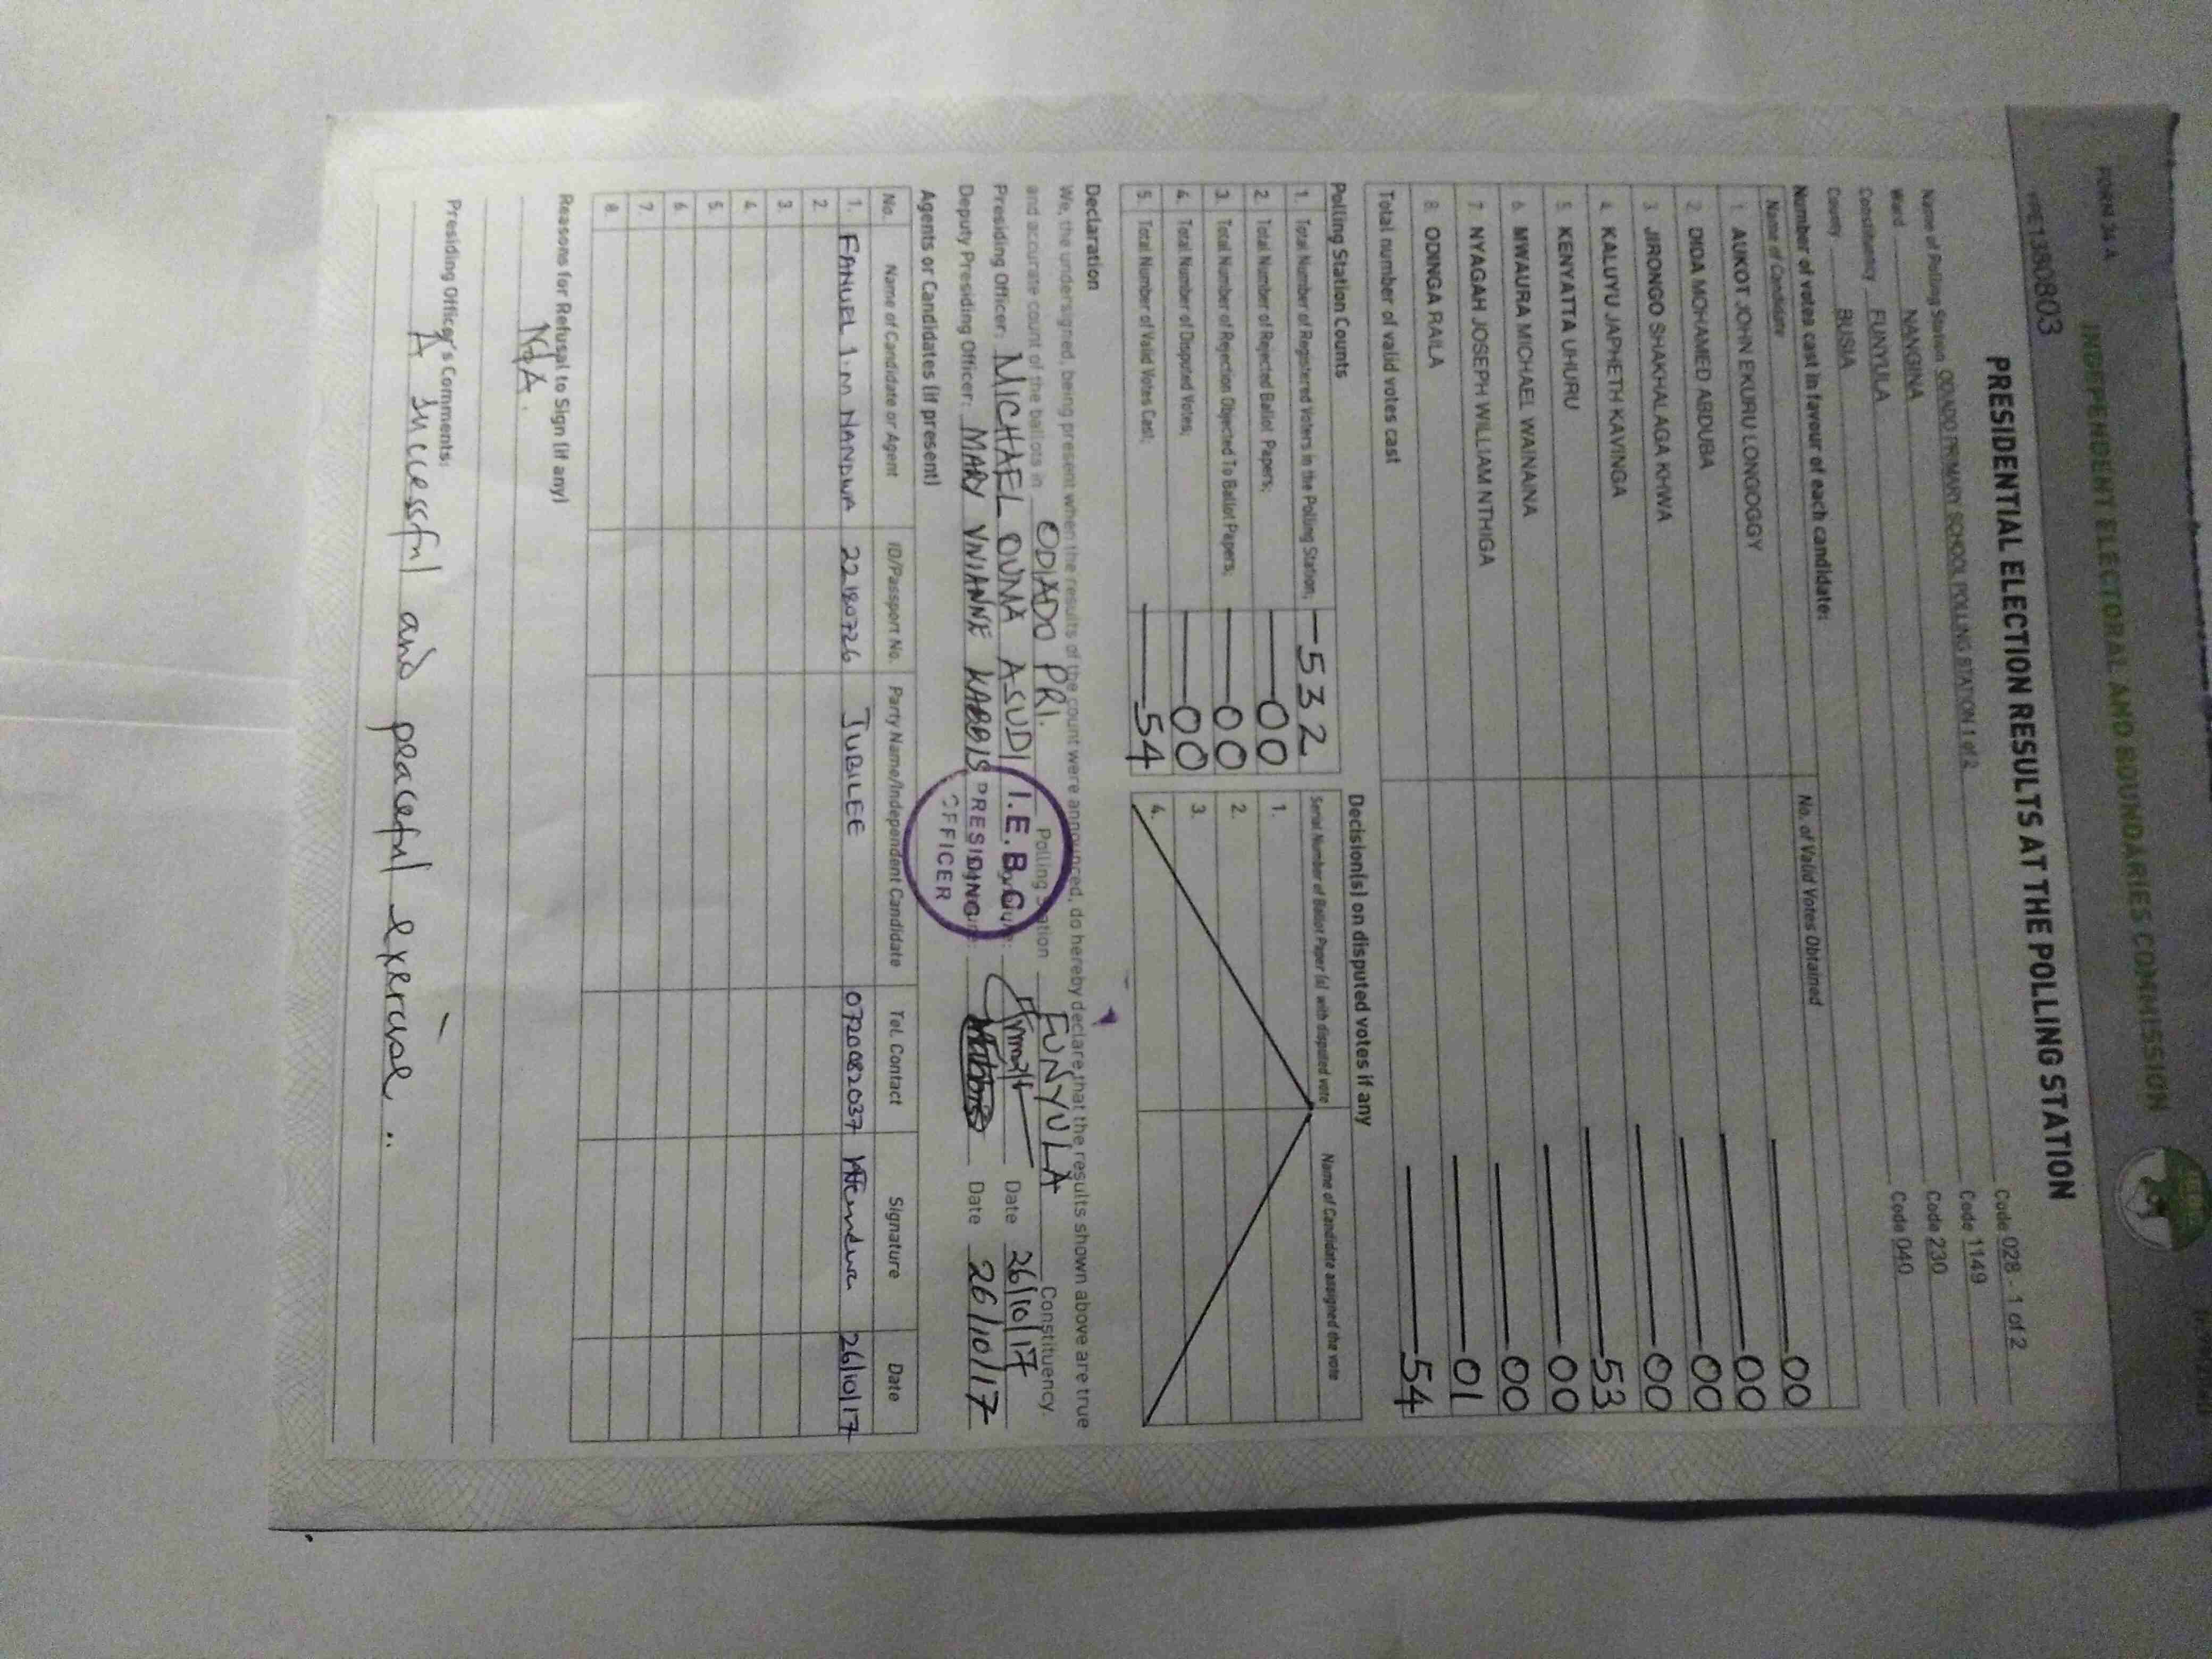 FORM 34 A
INDEPENDENT ELECTORAL AND BOUNDARIES COMMISSION
PRE1380803
PRESIDENTIAL ELECTION RESULTS AT THE POLLING STATION
Name of Polling Station ODIADO PRIMARY SCHOOL POLLING STATION 1 of 2 Code 028 - 1 of 2
Ward NANGINA Code 1149
Constituency FUNYULA Code 230
County BUSIA Code 040
Number of votes cast in favour of each candidate:
Name of Candidate No. of Valid Votes Obtained
1. AUKOT JOHN EKURU LONGOGGY 00
2. DIDA MOHAMED ABDUBA 00
3. JIRONGO SHAKHALAGA KHWA 00
4. KALUYU JAPHETH KAVINGA 00
5. KENYATTA UHURU 53
6. MWAURA MICHAEL WAINAINA 00
7. NYAGAH JOSEPH WILLIAM NTHIGA 00
8. ODINGA RAILA 01
Total number of valid votes cast 54
Polling Station Counts
1. Total Number of Registered Voters in the Polling Station; 532
2. Total Number of Rejected Ballot Papers; 00
3. Total Number of Rejection Objected To Ballot Papers; 00
4. Total Number of Disputed Votes; 00
5. Total Number of Valid Votes Cast; 54
Decision(s) on disputed votes if any
Serial Number of Ballot Paper (s) with disputed vote Name of Candidate assigned the vote
1.
2.
3.
4.
Declaration
We, the undersigned, being present when the results of the count were announced, do hereby declare that the results shown above are true
and accurate count of the ballots in ODIADO PRI. Polling Station FUNYULA Constituency.
Presiding Officer: MICHAEL OUMA ASUDI Date 26/10/17
Deputy Presiding Officer: MARY VIVIANNE KABBIS Date 26/10/17
I.E.B.C
PRESIDING
OFFICER
Agents or Candidates (if present)
No. Name of Candidate or Agent ID/Passport No. Party Name/Independent Candidate Tel. Contact Signature Date
1. FANUEL 1.M NANDWA 22180726 JUBILEE 0720082037 26/10/17
2.
3.
4.
5.
6.
7.
8.
Reasons for Refusal to Sign (if any)
N/A.
Presiding Officer's Comments:
A successful and peaceful exercise..